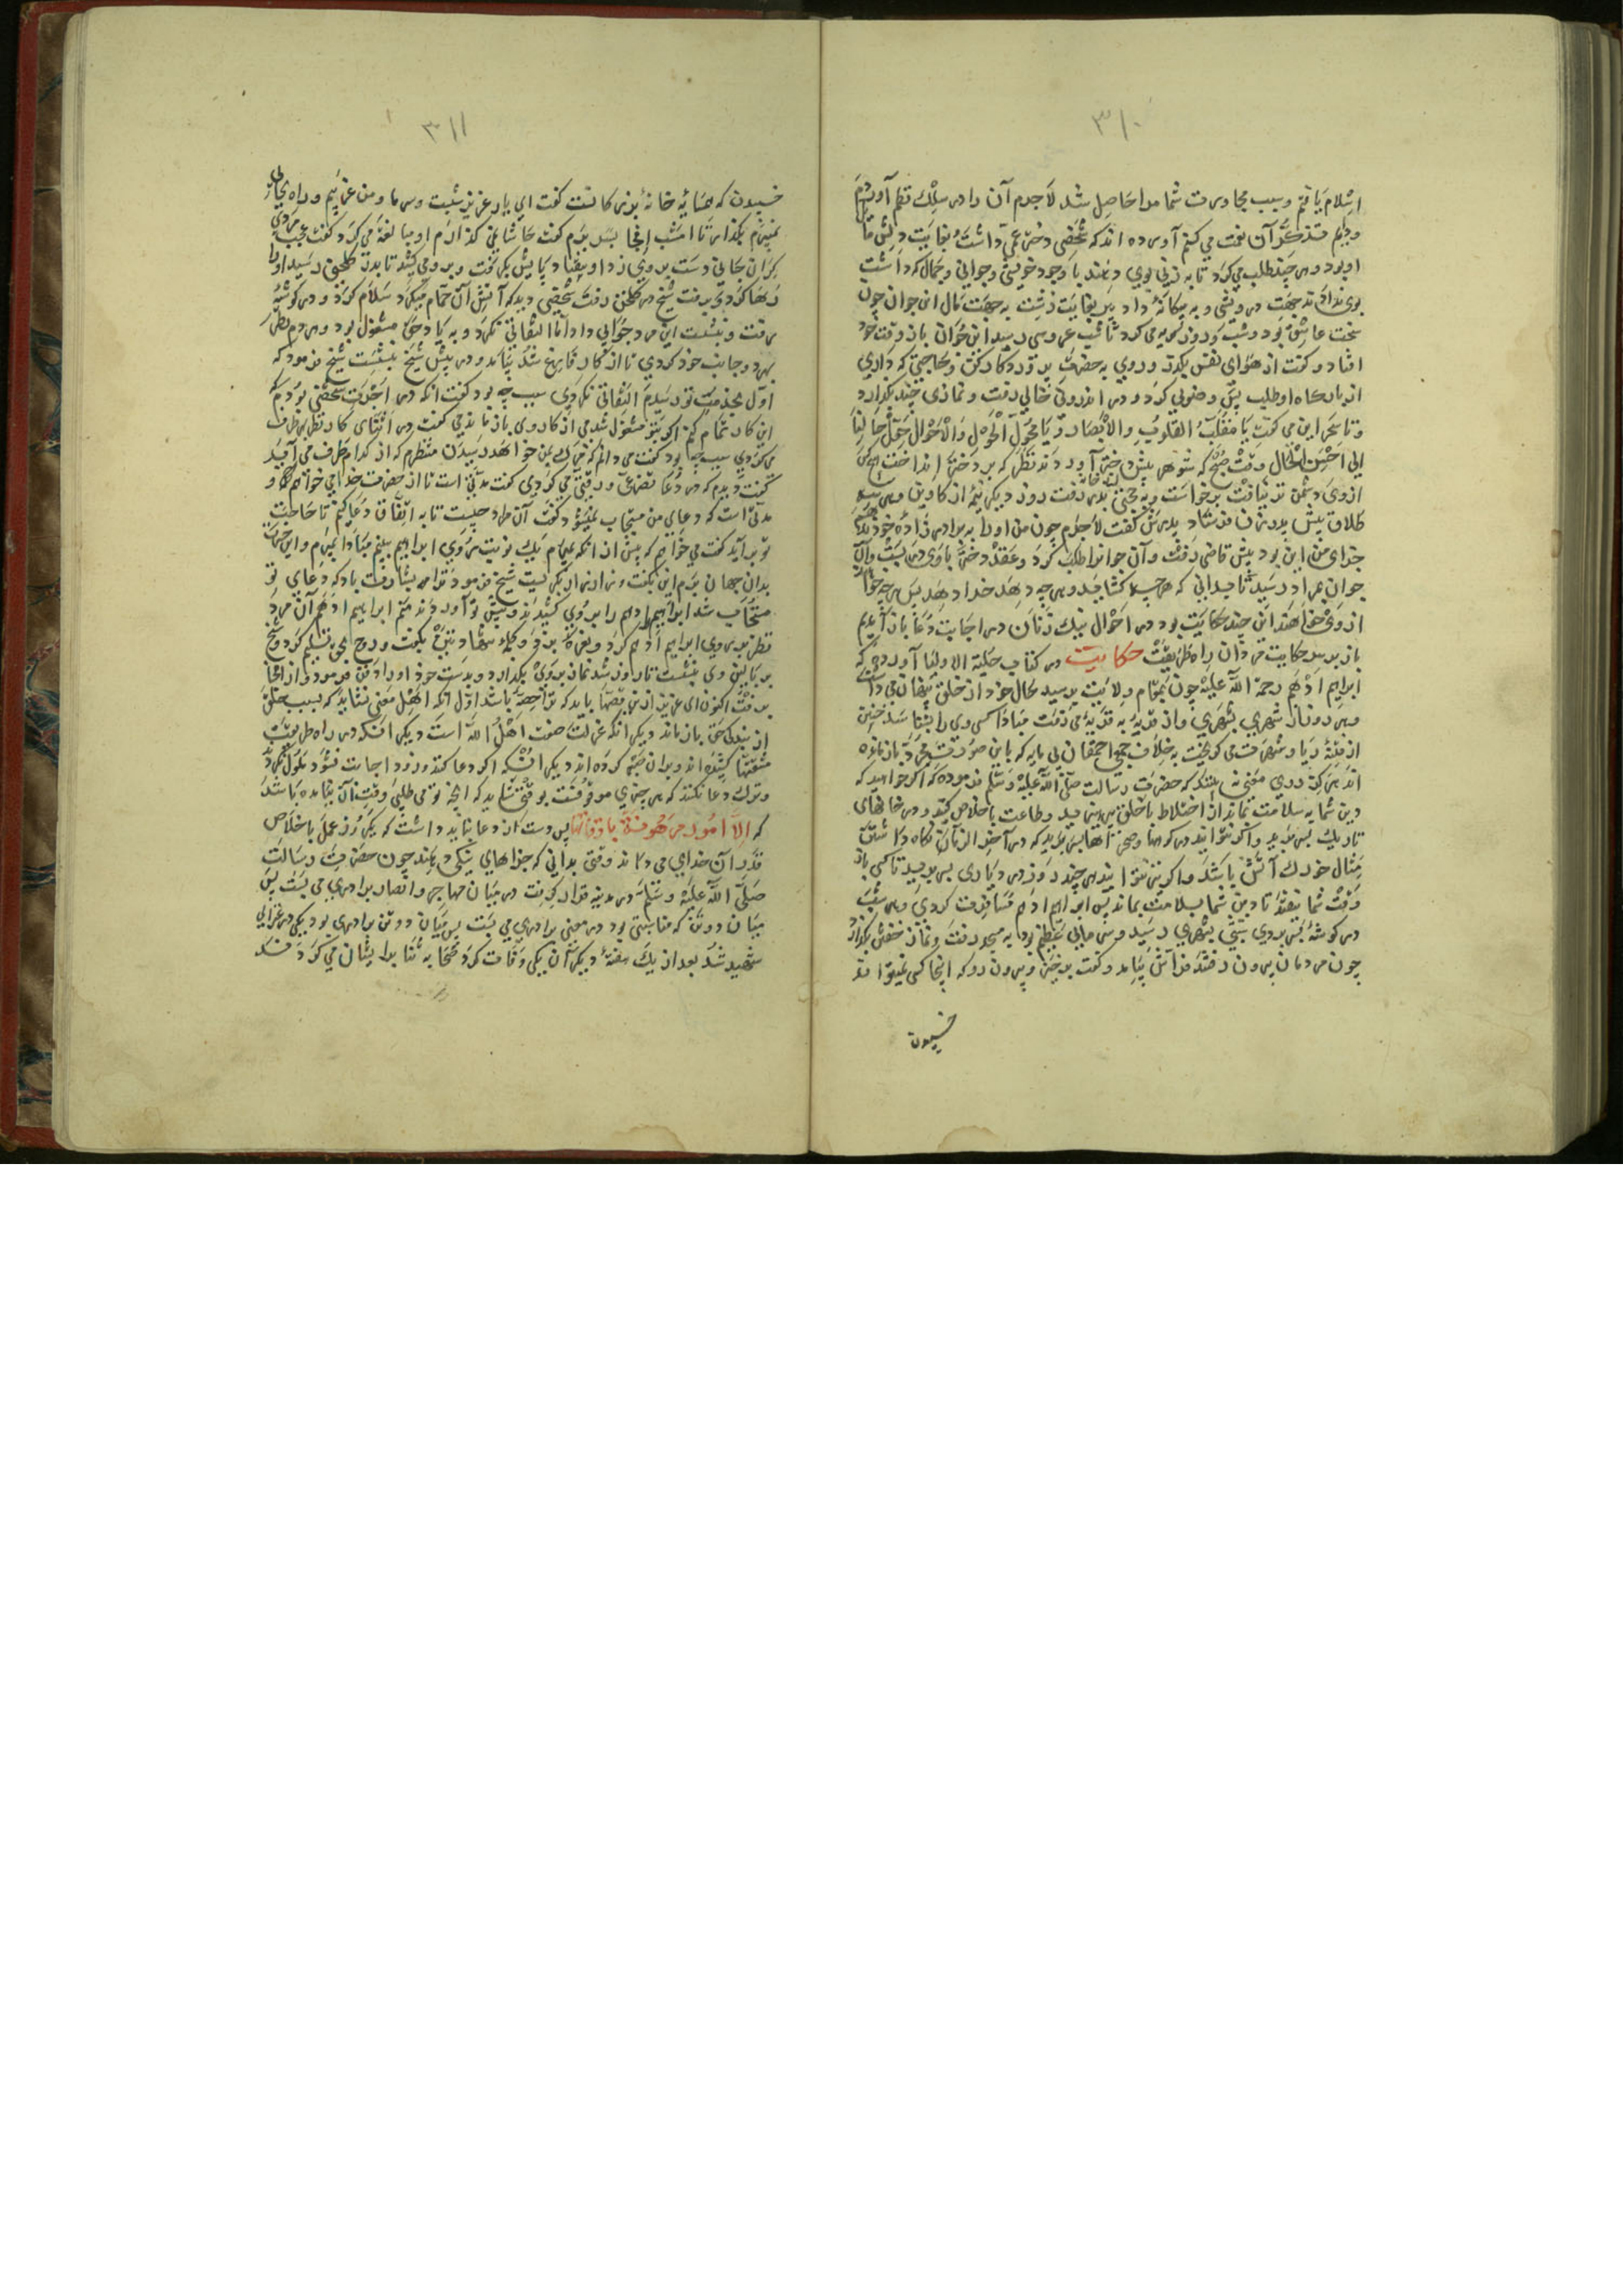 ۳۱۰
اسلام یافتم و سبب مجاورت شما مرا حاصل شد لاجرم آن را در سلک نظم آوردم
و بدایم تذکر آن نعمت می کنم آورده اند که شخصی دختر عمی داشت بغایت دلش
او بود و هر چند طلب می کرد تا به زنی بوی دهند با وجود خویشی و جوانی و جمال که داشت
بوی ندادند جهت درویشی و به بیکانهٔ داد پیر بغایت زشت به جهت مال این جوان چون
سخت عاشق بود و شب و روز کریه می کرد تا شب عروسی رسید این جوان باز وقت خود
افتاد و کفت از هوای نفس بکذر و روی به حضرت پروردکار کن و حاجتی که داری
از بارکاه او طلب پس وضوئی کرد و در اندرونی خالی رفت و نمازی چند بکزارد
و تا سحر این می کفت یا مقلب القلوب والابصار و یا محول الحول والاحوال حول حالنا
الی احسن الحال وقت صبح که شوهر پیش دختر آوردند نظر که بر دختر انداخت
از وی دشمن تر نیافت برخاست و به خانه پدر رفت روز دیکر نیم از کاوین و هر سه
طلاق پیش پدر زن فرستاد پدرش کفت لاجرم چون من او را به برادر زاده خود ندادم
جزای من این بود پیش قاضی رفت و آن جوان را طلب کرد و عقد دختر با وی در بست و آن
جوان بمراد رسید تا بدانی که هر چه کشاید و هر چه دهد خدا دهد پس هر چه خواهند
از وی خواهند این چند حکایت بود در احوال نیک زنان در اجابت دعا باز آمدیم
باز بر سر حکایت مردان راه طریقت حکایت در کتاب حلیة الاولیا آورده که
ابراهیم ادهم رحمة الله علیه چون بمقام ولایت برسید حال خود از خلق پنهان می داشت
و هر روز از شهری بشهری و از قریهٔ به قریهٔ می رفت مبادا کسی وی را بشناسد
از فتنهٔ ریا و شهرت می کریخت به خلاف جمع احمقان
دین شما به سلامت بماند از اختلاط با خلق بپرهیزید و طاعت باخلاص کنید و در خانهای
تاریک بسر برید و اکر نتوانید در کوهها و صحراها بسر برید که در آخر الزمان نکاه داشتن
مثال خوردن آتش باشد و اکر نیز نتوانید هر چند روز در دیاری بسر برید تا کسی باز
وقت شما نیفتد تا دین شما بسلامت بماند پس ابراهیم ادهم مسافرت کردی و هر شب
در کوشهٔ بسر بردی شبی بشهری رسید و سرمایی عظیم بود به مسجد رفت و نماز خفتن بکزارد
چون مردمان بیرون رفتند فراش بیامد و کفت برخیز و بیرون رو که اینجا کسی نمیتواند
خسپیدن
۳۱۱
خسپیدن که همسایهٔ خانهٔ بزرکانست کفت ای یار عزیز شبست و سرما و من غریبم و راه بجائی
نمیبرم بکذار تا امشب اینجا بسر برم کفت حاشا نمی کذارم او مبالغه می کرد
حالی دست بروی زد او بیفتاد پایش بکرفت و برومی کشید تا بدر کلخن رسید او را
رها کرد و برفت شیخ در کلخن رفت شخصی دید که آتش آن حمام میکرد سلام کرد و در کوشهٔ
رفت و بنشست این مرد جوابی داد اما التفاتی نکرد و به کار خود مشغول بود و هر دم نظر
بهر دو جانب خود کردی تا از کار فارغ شد بیامد و در پیش شیخ بنشست شیخ فرمود که
اول بخدمت تو رسیدم التفاتی نکردی سبب چه بود کفت انکه در اجرت شخصی بودم
این کار تمام کنم اکر بتو مشغول شدمی از کار وی باز ماندمی کفت در اثنای کار نظر بهر طرف
می کردی سبب چه بود کفت می دانم که مرک بمن خواهد رسیدن منتظرم که از کدام طرف می آید
کفت دیدم که در دعا تضرع و رقتی می کردی کفت مدتی است تا از حضرت خدای خواهم و
مدتی است که دعای من مستجاب نمیشود کفت آن مراد چیست تا به اتفاق دعا کنم تا حاجت
تو برآید کفت می خواهم که پیش از انکه بمیرم یک نوبت روی ابراهیم ببینم مبادا بمیرم و این حسرت
بدان جهان برم این بکفت و زار زار بکریست شیخ فرمود ترا بشارت باد که دعای تو
مستجاب شد ابراهیم ادهم را بروی کشیدند و پیش تو آوردند منم ابراهیم ادهم آن مرد
نظر بر روی ابراهیم ادهم کرد و نعره بزد و کلمه شهادتین بکفت و روح بحق تسلیم کرد و شیخ
بر بالین وی بنشست تا روز شد نماز بر وی بکزارد و بدست خود او را دفن فرمود و از انجا
برفت اکنون ای عزیز ازین قصها باید که ترا حصه باشد اول انکه اهل معنی نشاید که بسبب خلق
از بندکی حق باز ماند دیکر انکه عزلت صفت اهل الله است دیکر انکه در راه طریقت
مشقتها کشیده اند و بران صبر کرده اند دیکر انکه اکر دعا کند و زود اجابت نشود ملول نکردد
و ترک دعا نکند که هر چیزی موقوفست بوقتی شاید که انچه تو می طلبی وقت آن نیامده باشد
که الا امور مرهونة باوقاتها پس دست از دعا نباید داشت که یکروز عمل باخلاص
قدر آن خدای می داند وقتی بدانی که جزاهای نیکی دهند چون حضرت رسالت
صلی الله علیه وسلم در مدینه قرار کرفت در میان مهاجر و انصار برادری می بست پس
میان دو تن که مناسبتی بود در معنی برادری می بست پس میان دو تن برادری بود یکی در غزایی
شهید شد بعد از یک هفتهٔ دیکر آن یکی وفات کرد صحابه ثنا بر ایشان می کردند